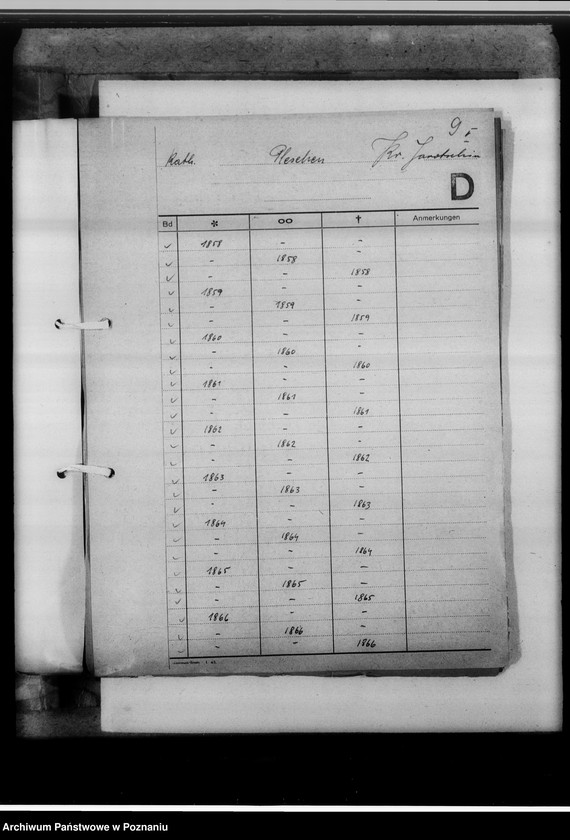 9 I
Kath. Pleschen Kr. Jarotschin
D
Bd * oo † Anmerkungen
✓ 1858 - -
✓ - 1858 -
✓ - - 1858
✓ 1859 - -
✓ - 1859 -
✓ - - 1859
✓ 1860 - -
✓ - 1860 -
✓ - - 1860
✓ 1861 - -
✓ - 1861 -
✓ - - 1861
✓ 1862 - -
✓ - 1862 -
✓ - - 1862
✓ 1863 - -
✓ - 1863 -
✓ - - 1863
✓ 1864 - -
✓ - 1864 -
✓ - - 1864
✓ 1865 - -
✓ - 1865 -
✓ - - 1865
✓ 1866 - -
✓ - 1866 -
✓ - - 1866
Archiwum Państwowe w Poznaniu